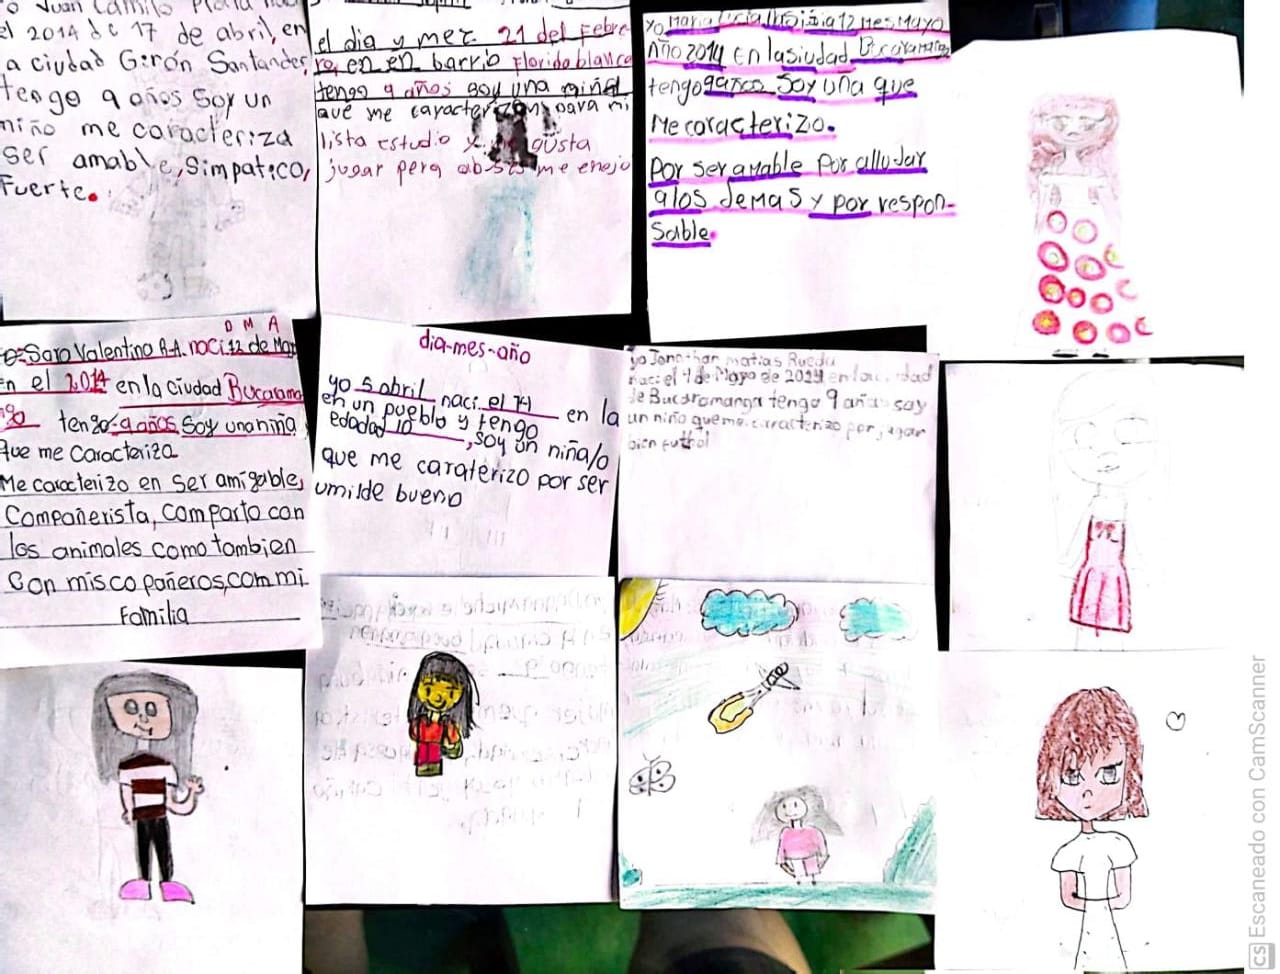 Juan Camilo
el 2014 de 17 de abril, en
la ciudad Girón Santander,
tengo 9 años Soy un
niño me caracteriza
Ser amable, Simpatico,
Fuerte.
el dia y mez 21 del Febre
ro en en barrio Floridablanca
tengo 9 años soy una niña
que me caracterizon para mi
lista Estudio y me gusta
jugar pero me enojo
yo Maria 12 Mes Mayo
Año 2014 En la siudad
tengo 9 años Soy uña que
Me caracterizo.
por ser amable por alludar
a los demas y por respon-
sable.
D M A
Sara Valentina R.A. naci 12 de
En el 2014 en la ciudad Bucarama
tengo 9 años Soy una niña
que me Caracteriza
Me caracterizo en ser amigable,
Compañerista, comparto con
los animales como tambien
Con mis copañeros, com mi
Familia
dia-mes-año
yo 5 abril naci el 14 en la
en un pueblo y tengo
edadad 10, soy un niña/o
que me caraterizo por ser
umilde bueno
yo Jonathan matias Rueda
naci el 4 de Mayo de en la
de Bucaramanga tengo 9 años soy
un niño que me caracterizo por jugar
bien futbol
CS Escaneado con CamScanner